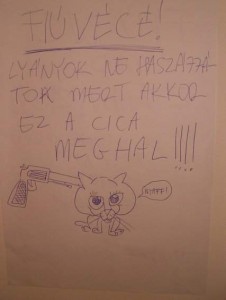 FIÚVÉCÉ!
LYÁNYOK NE HASZÁJJÁ
TOK MERT AKKOR
EZ A CICA
MEGHAL!!!!
NYAFF!